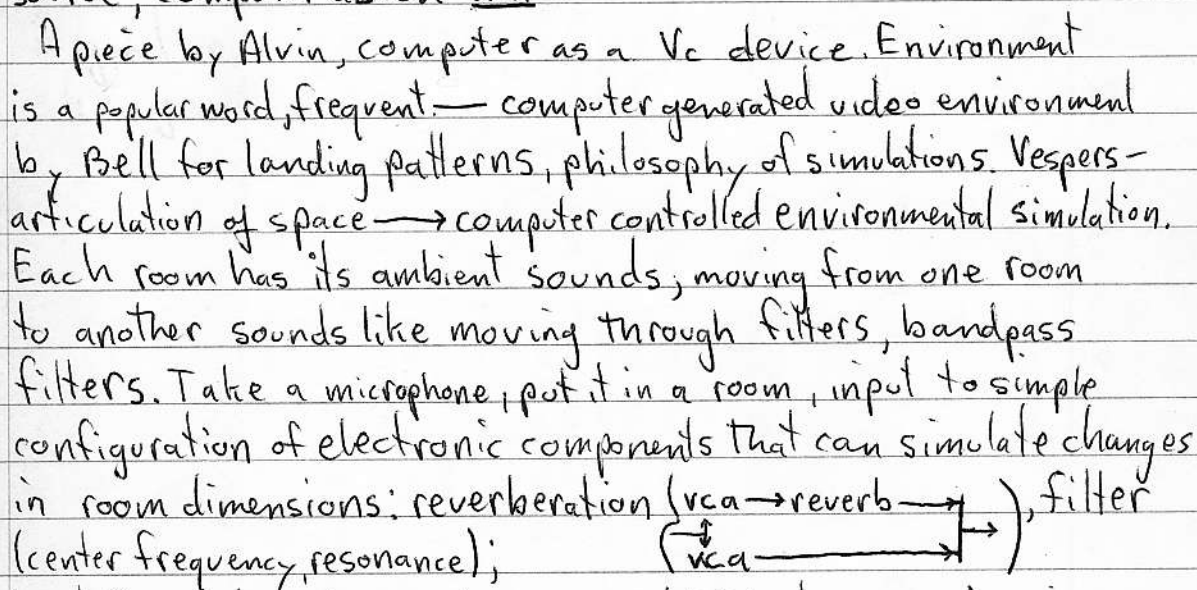 A piece by Alvin, computer as a Vc device. Environment
is a popular word, frequent. — computer generated video environment
by Bell for landing patterns, philosophy of simulations. Vespers -
articulation of space → computer controlled environmental simulation.
Each room has its ambient sounds; moving from one room
to another sounds like moving through filters, bandpass
filters. Take a microphone, put it in a room, input to simple
configuration of electronic components that can simulate changes
in room dimensions: reverberation (vca → reverb → ), filter
(center frequency, resonance); vca